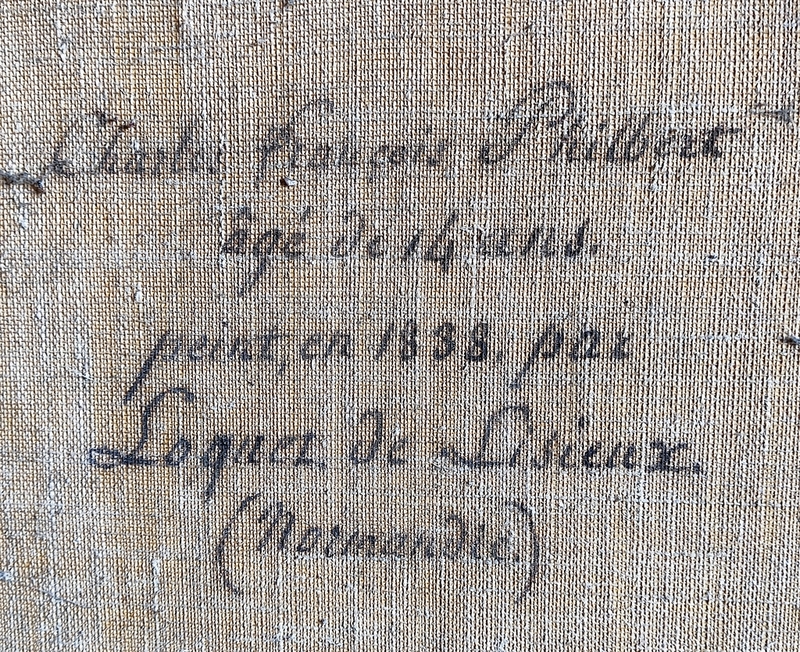 Charles François Philbert
âgé de 14 ans.
peint, en 1838. par
Loquet de Lisieux.
(Normandie.)